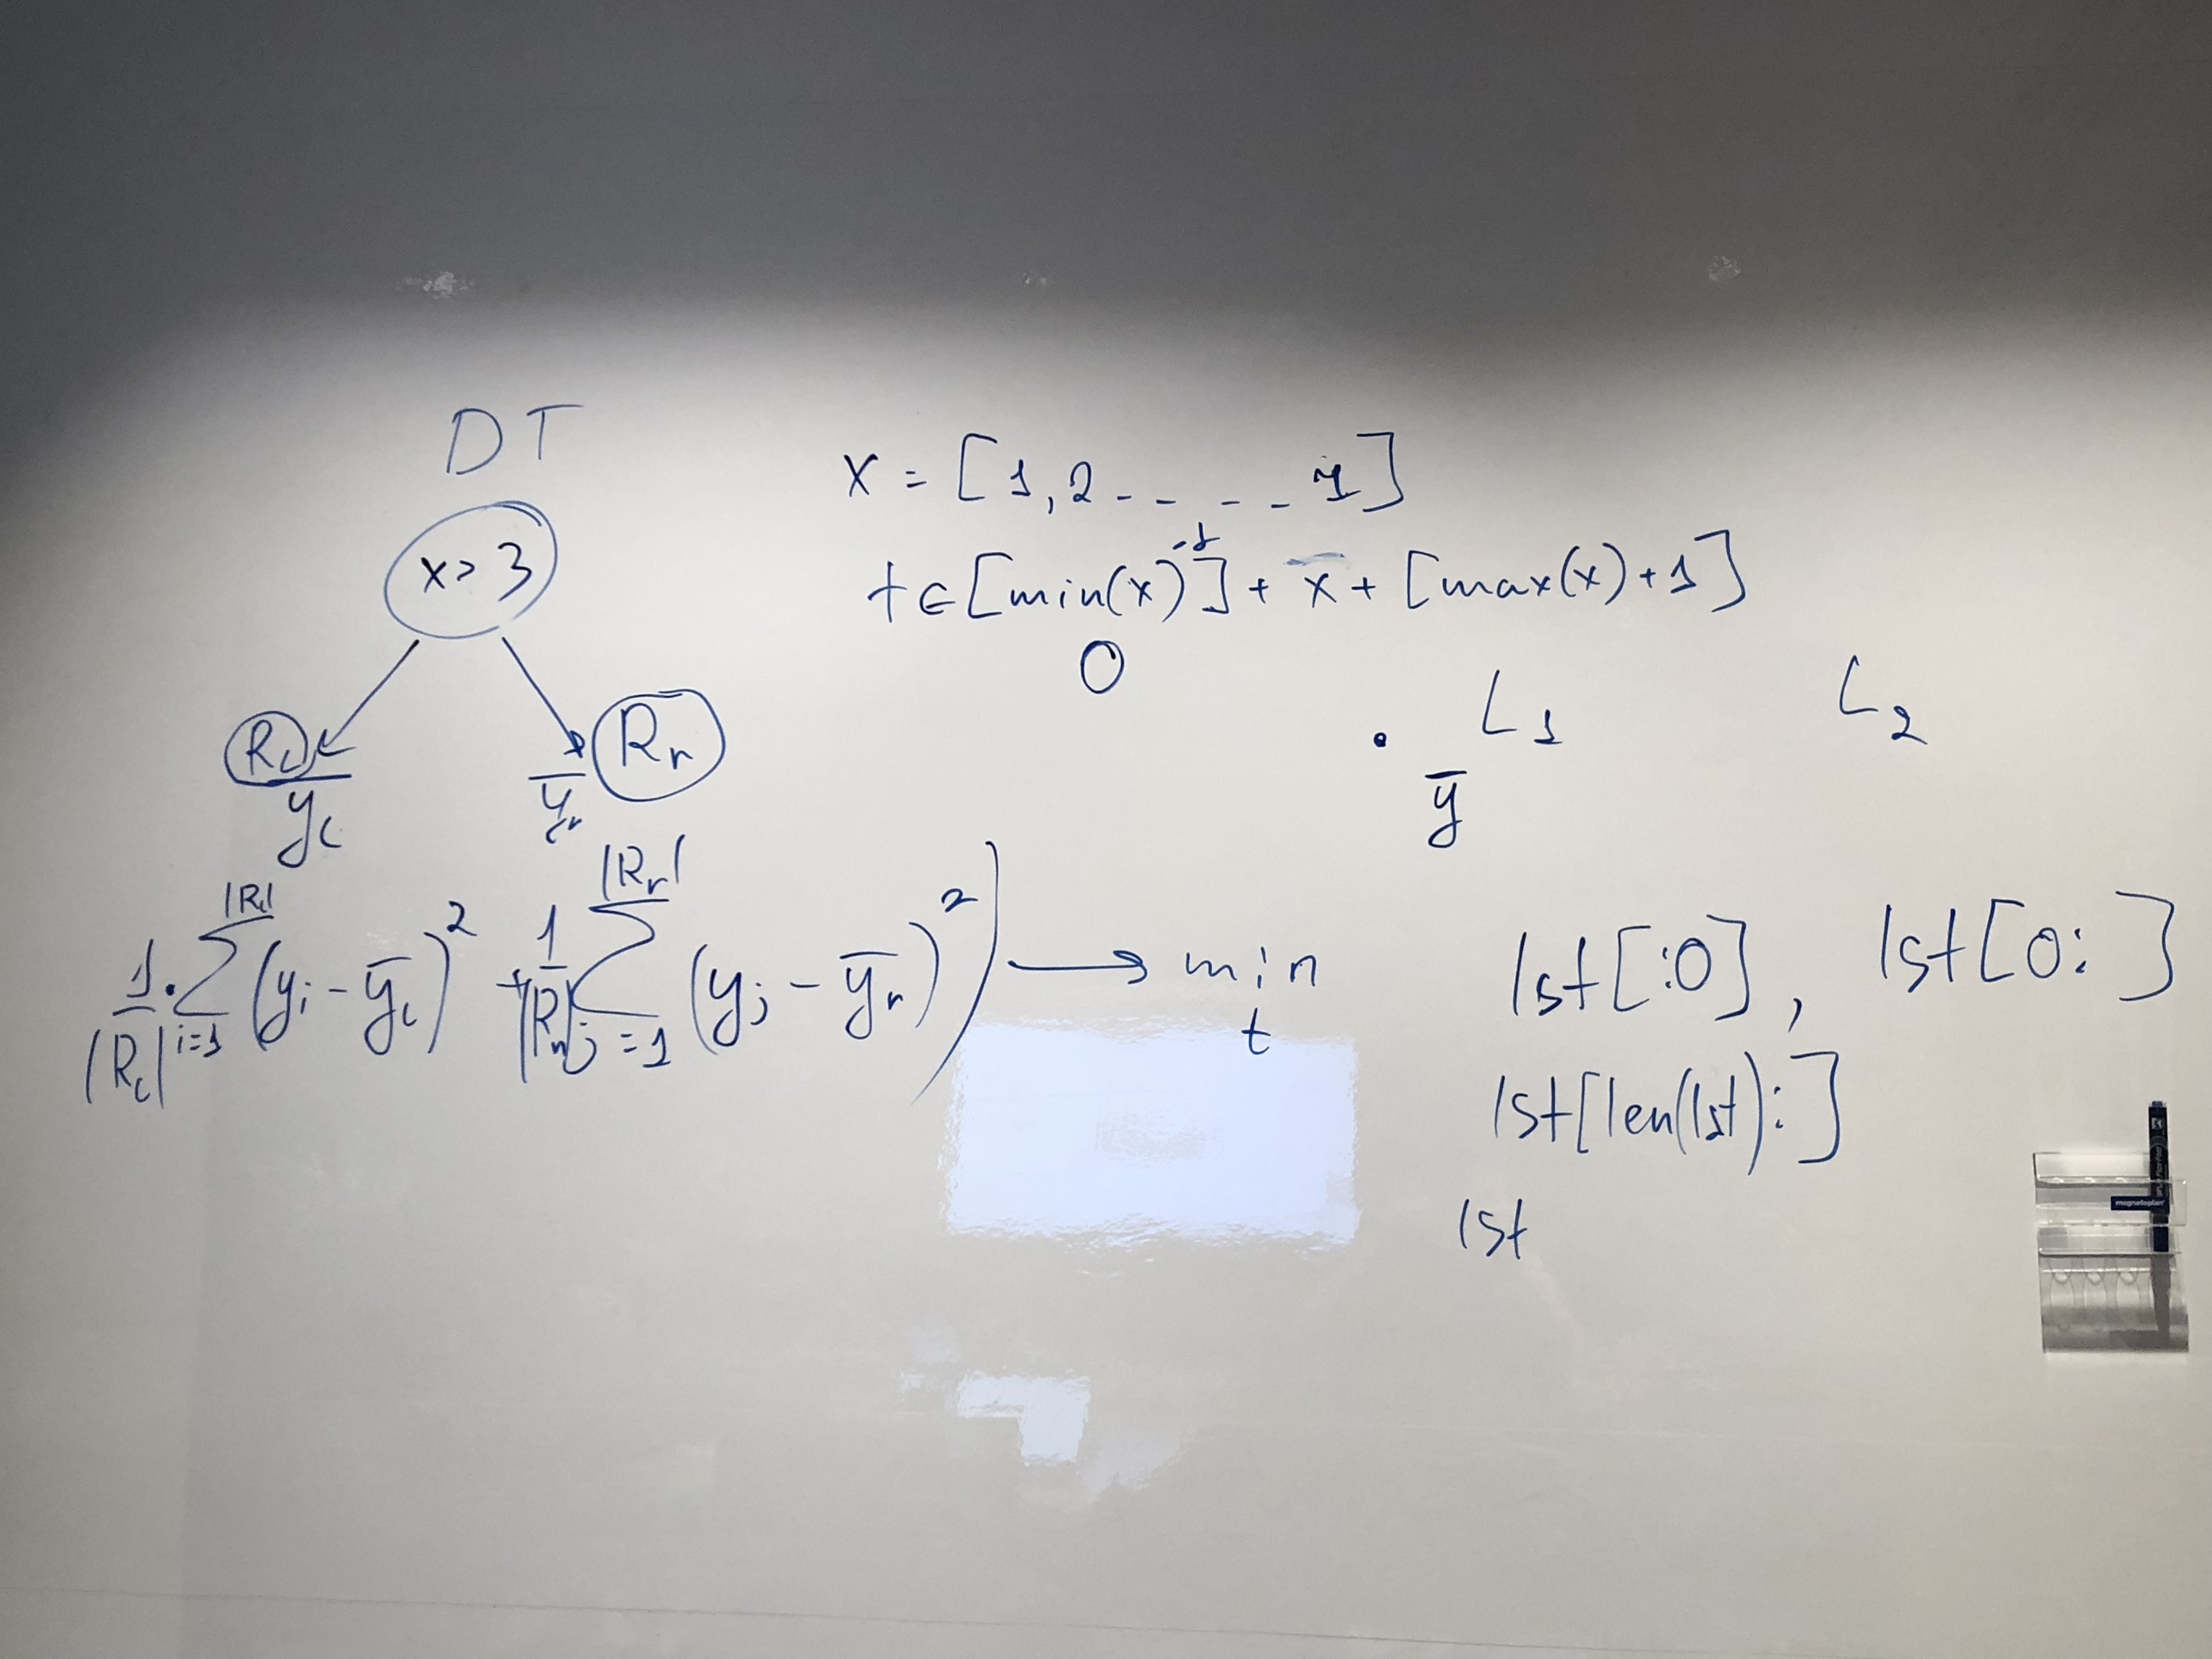 DT
x > 3
R_l
ȳ_l
R_r
ȳ_r
1/|R_l| · ∑_{i=1}^{|R_l|} (y_i - ȳ_l)² + 1/|R_r| ∑_{j=1}^{|R_r|} (y_j - ȳ_r)² ) → min_t
x = [1, 2 - - - -
t ∈ [min(x)^{-1}] + x + [max(x) + 1]
0
. L_1 L_2
ȳ
lst[:0], lst[0: ]
lst[len(lst): ]
lst
magnetoplan